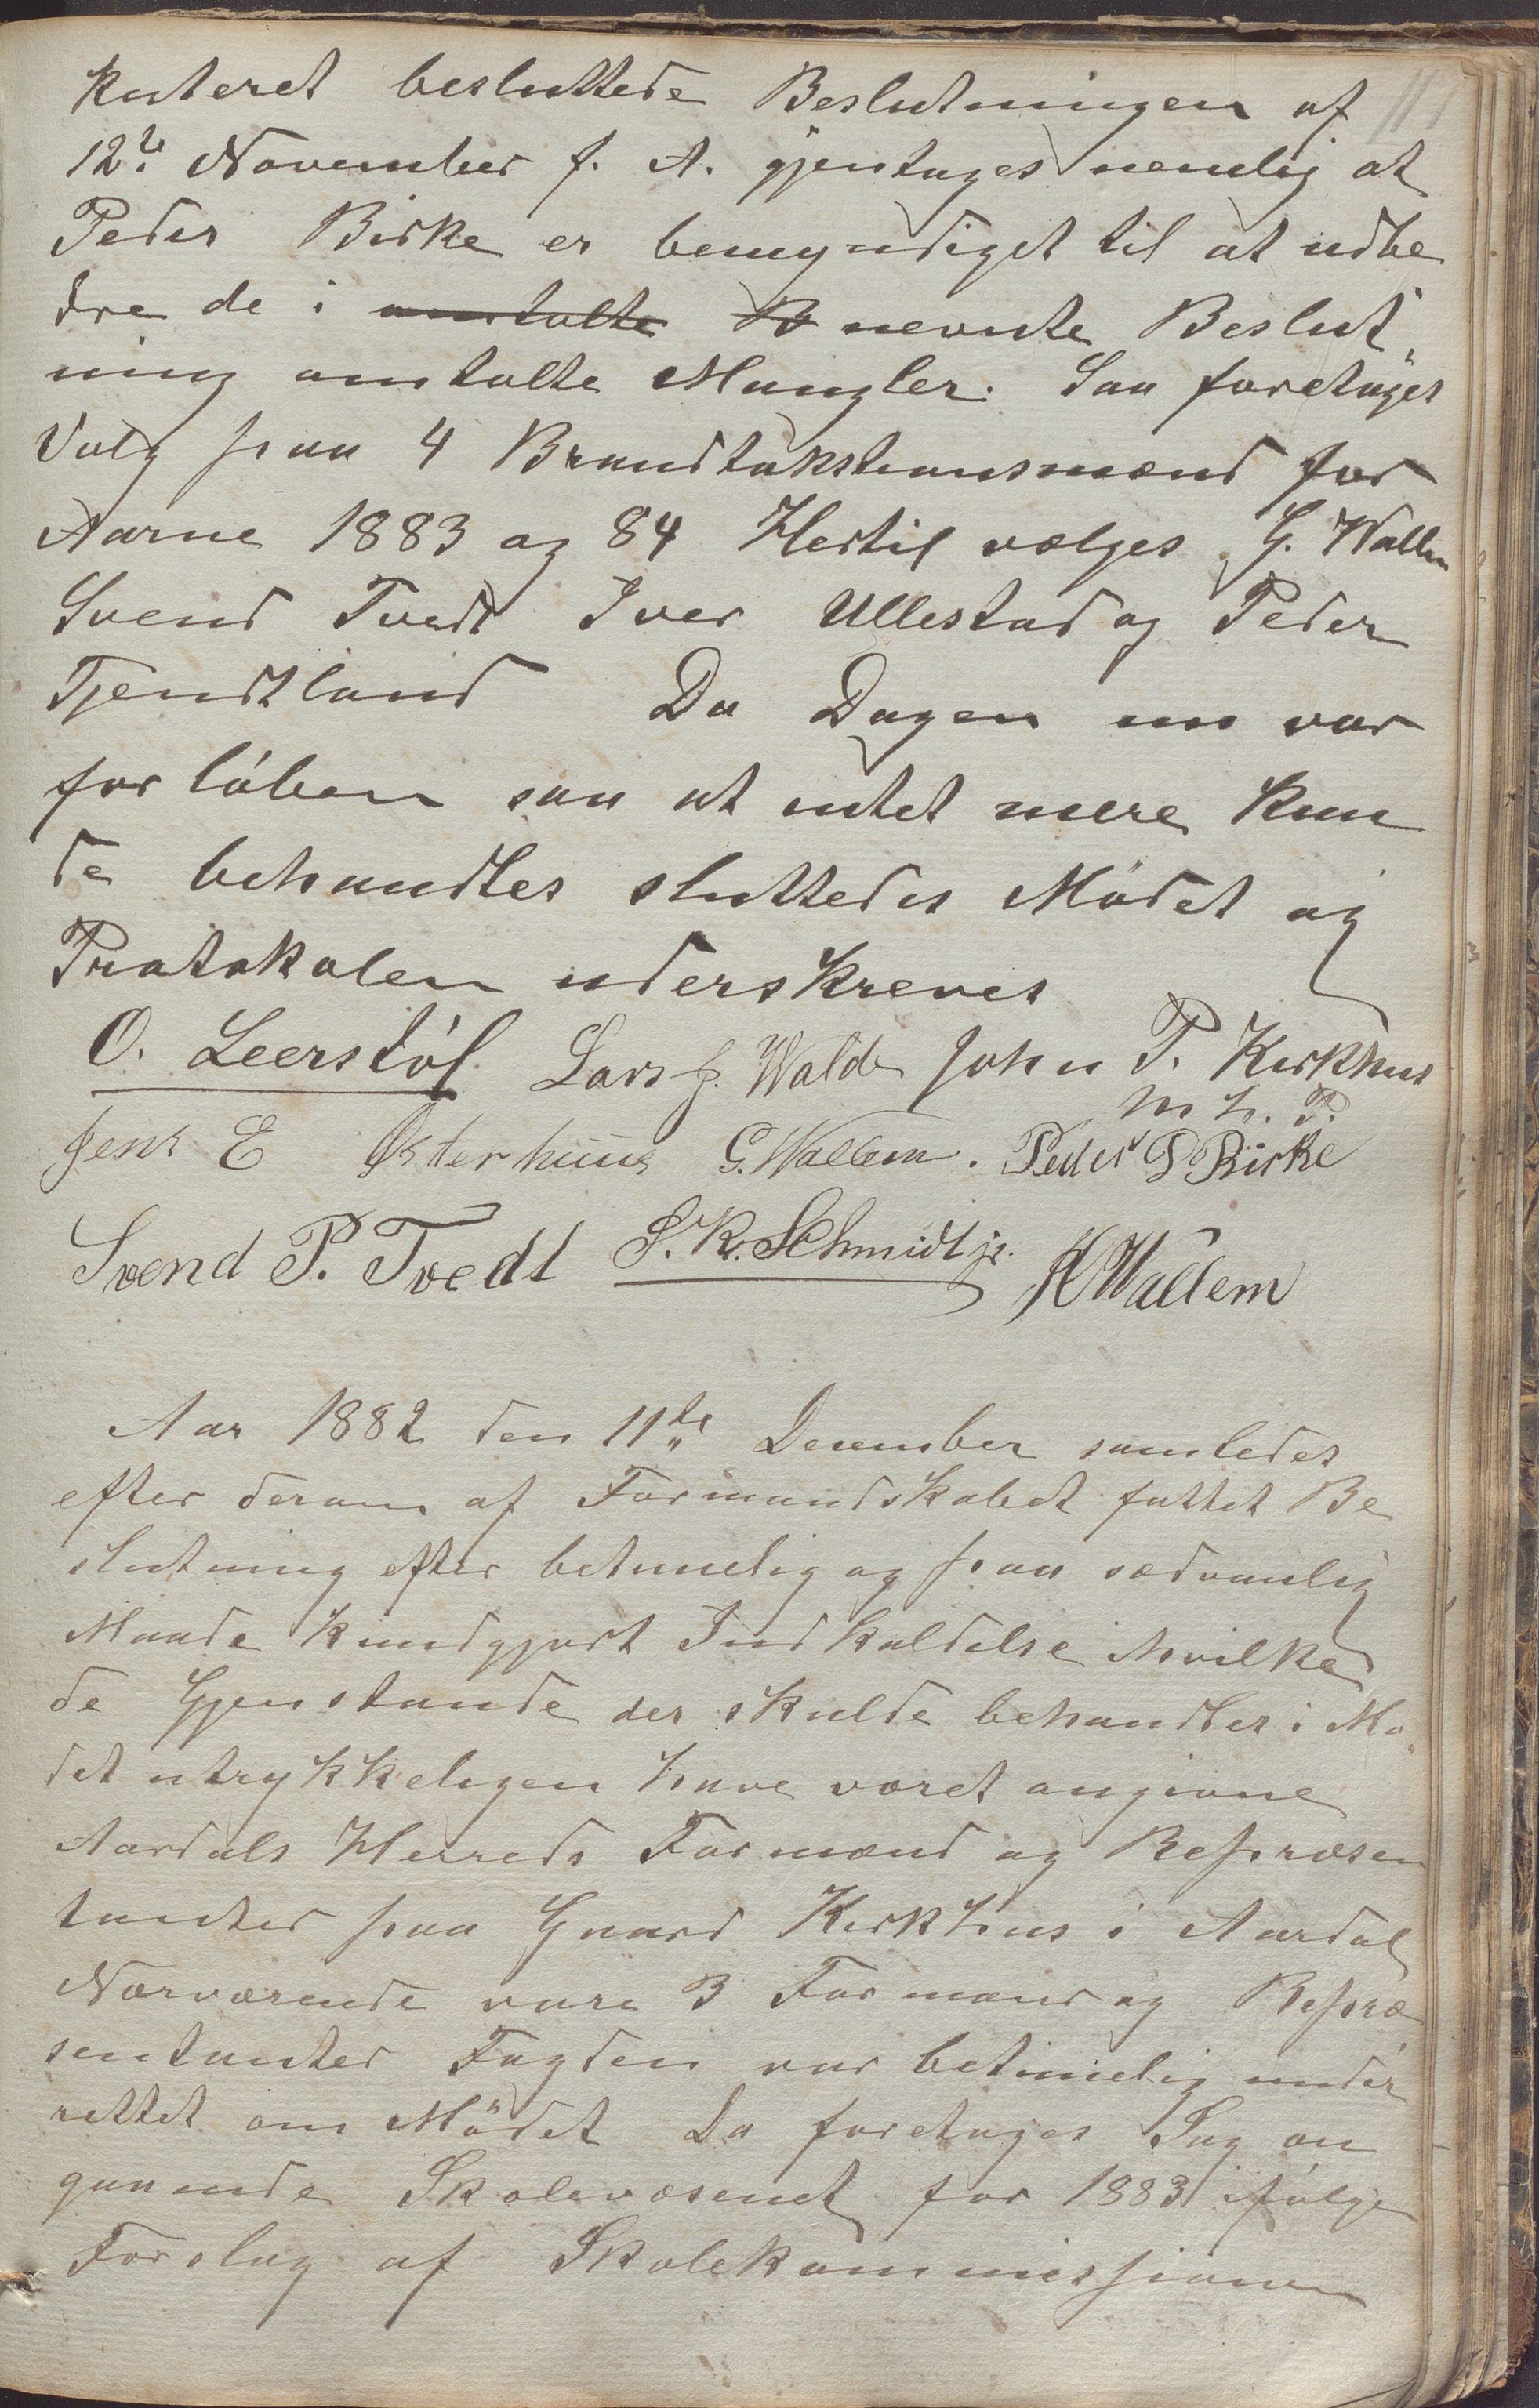 117
kuteret besluttede Beslutningen af
12te November f. A. gjentages nemlig at
Peder Birke er bemyndiget til at udbe
dre de i omtalte B nevnte Beslut
ning omtalte Mangler. Saa foretages
Valg paa 4 Brandtakstionsmænd for
Aarne 1883 og 84 Hertil vælges G. Wallem
Svend Tvedt Iver Ullestad og Peder
Tjendtland Da Dagen nu var
forløben saa at intet mere kun
de behandles sluttedes Mødet og
Protokolen uderskreves
O. Leerstøl Lars J. Walde John P. Kirkhus
m. h. P.
Jens E Østerhuus G. Wallem. Peder P Birke
Svend P. Tvedt S. K. Schmidt jr. K Wallem
Aar 1882 den 11te December samledes
efter derom af Formandskabet fattet Be
slutning efter betimelig og paa sædvanlig
Maade kundgjort Indkaldelse hvilke
de Gjenstande der skulde behandles i Mø
det utrykkeligen have været angivne
Aardals Herreds Formænd og Repræsen
tanter paa Gaard Kirkhus i Aardal
Nærværende vare 3 Formænd og Repræ
sentanter Fogden var betimelig under
rettet om Mødet Da foretages Sag an
gaaende Skolevæsenet for 1883 ifølge
Forslag af Skolekommissionen